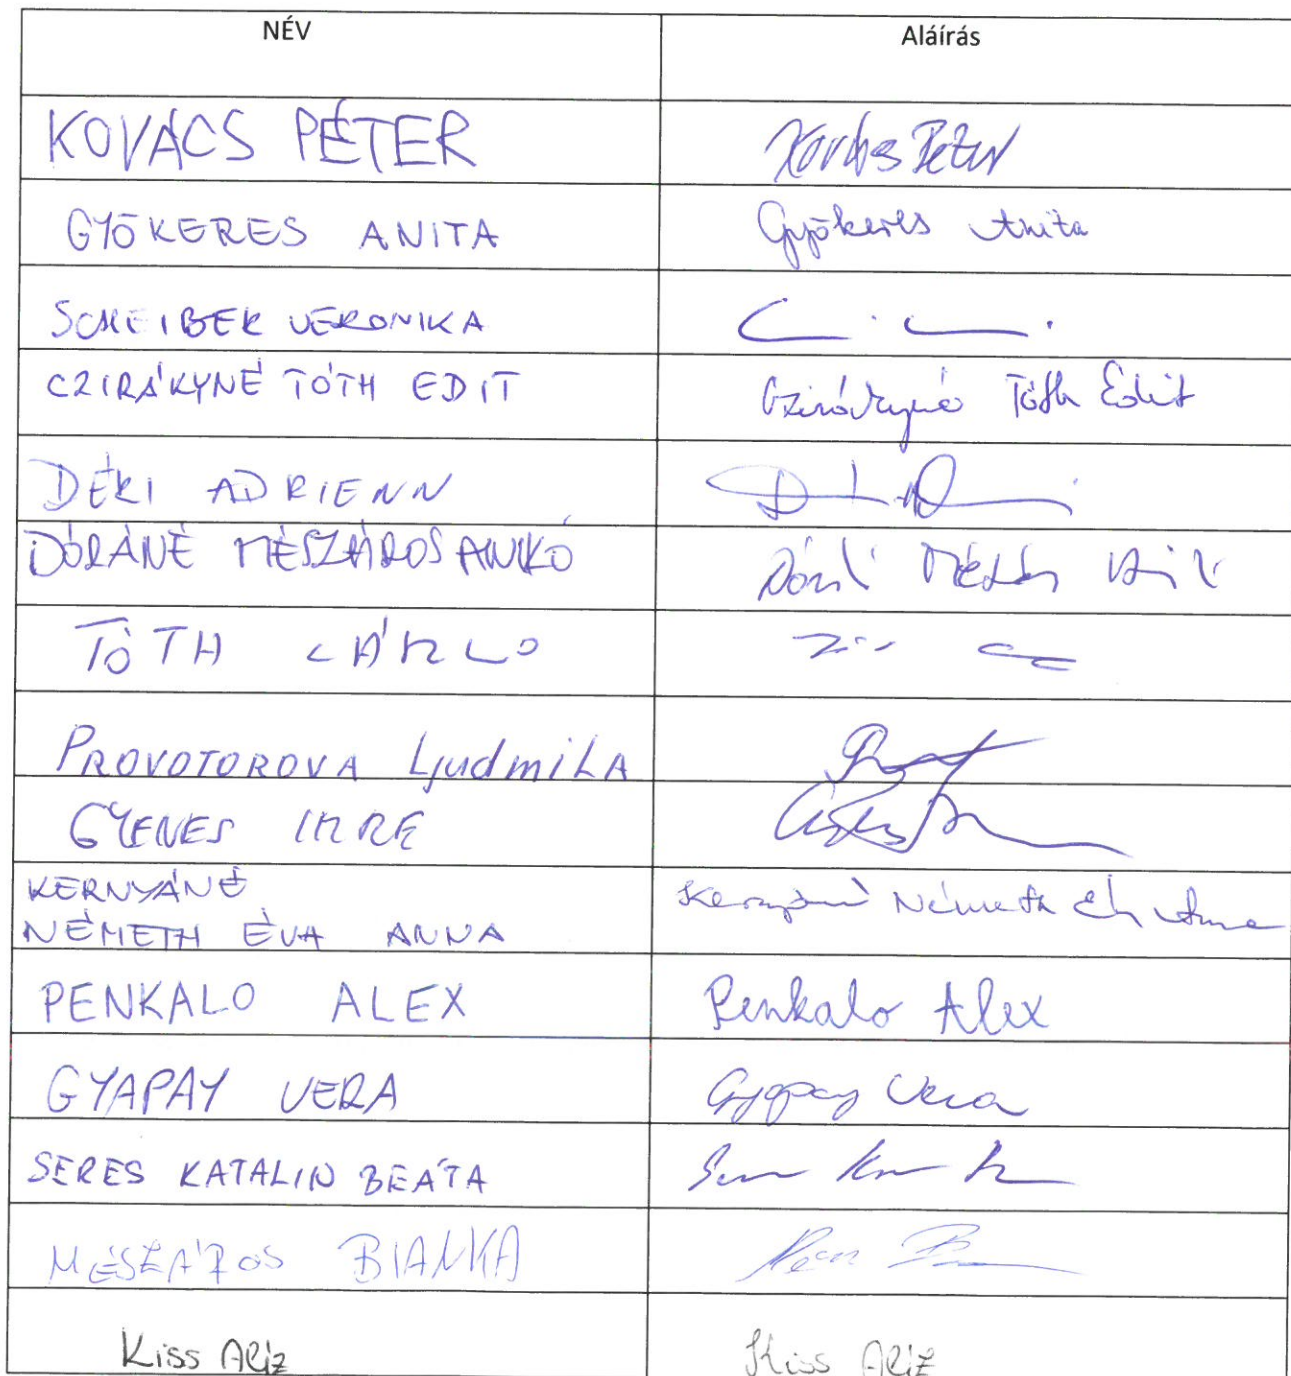 NÉV Aláírás
KOVÁCS PÉTER Kovács Péter
GYÖKERES ANITA Gyökeres Anita
SCHEIBER VERONIKA
CZIRÁKYNÉ TÓTH EDIT Czirákyné Tóth Edit
DÉRI ADRIENN
DÓRÁNÉ MÉSZÁROS ANIKÓ
TÓTH
PROVOTOROVA LjudmiLA
GYENES IMRE
KERNYÁNÉ
NÉMETH ÉVA ANNA Kernyáné Németh Éva Anna
PENKALO ALEX Penkalo Alex
GYAPAY VERA Gyapay Vera
SERES KATALIN BEÁTA
MÉSZÁROS BIANKA
Kiss Alíz Kiss Alíz